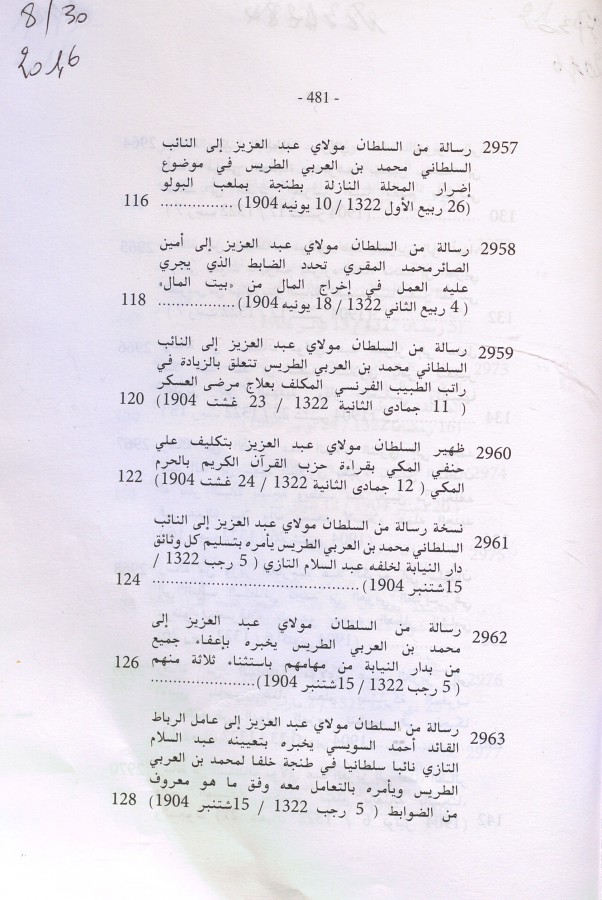 8/30
2046
- 481 -
2957 رسالة من السلطان مولاي عبد العزيز إلى النائب
السلطاني محمد بن العربي الطريس في موضوع
إضرار المحلة النازلة بطنجة بملعب البولو
(26 ربيع الأول 1322 / 10 يونيه 1904) ................ 116
2958 رسالة من السلطان مولاي عبد العزيز إلى أمين
الصائرمحمد المقري تحدد الضابط الذي يجري
عليه العمل في إخراج المال من «بيت المال»
( 4 ربيع الثاني 1322 / 18 يونيه 1904) ................. 118
2959 رسالة من السلطان مولاي عبد العزيز إلى النائب
السلطاني محمد بن العربي الطريس تتعلق بالزيادة في
راتب الطبيب الفرنسي المكلف بعلاج مرضى العسكر
( 11 جمادى الثانية 1322 / 23 غشت 1904) 120
2960 ظهير السلطان مولاي عبد العزيز بتكليف علي
حنفي المكي بقراءة حزب القرآن الكريم بالحرم
المكي ( 12 جمادى الثانية 1322 / 24 غشت 1904) 122
2961 نسخة رسالة من السلطان مولاي عبد العزيز إلى النائب
السلطاني محمد بن العربي الطريس يأمره بتسليم كل وثائق
دار النيابة لخلفه عبد السلام التازي ( 5 رجب 1322 /
15شتنبر 1904) ............................................ 124
2962 رسالة من السلطان مولاي عبد العزيز إلى
محمد بن العربي الطريس يخبره بإعفاء جميع
من بدار النيابة من مهامهم باستثناء ثلاثة منهم
( 5 رجب 1322 / 15شتنبر 1904)....................... 126
2963 رسالة من السلطان مولاي عبد العزيز إلى عامل الرباط
القائد أحمد السويسي يخبره بتعيينه عبد السلام
التازي نائبا سلطانيا في طنجة خلفا لمحمد بن العربي
الطريس ويأمره بالتعامل معه وفق ما هو معروف
من الضوابط ( 5 رجب 1322 / 15شتنبر 1904) 128